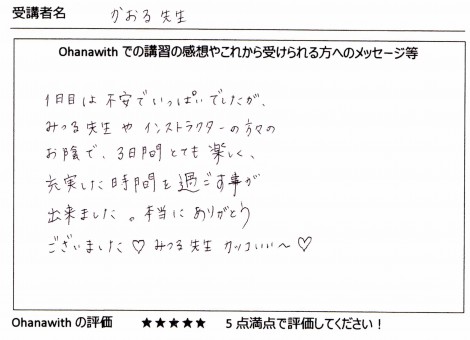 受講者名 かおる先生
Ohanawith での講習の感想やこれから受けられる方へのメッセージ等
1日目は不安でいっぱいでしたが、
みつる先生やインストラクターの方々の
お陰で、3日間とても楽しく、
充実した時間を過ごす事が
出来ました。本当にありがとう
ございました♡ みつる先生 カッコいい〜♡
Ohanawith の評価 ★★★★★ 5点満点で評価してください！